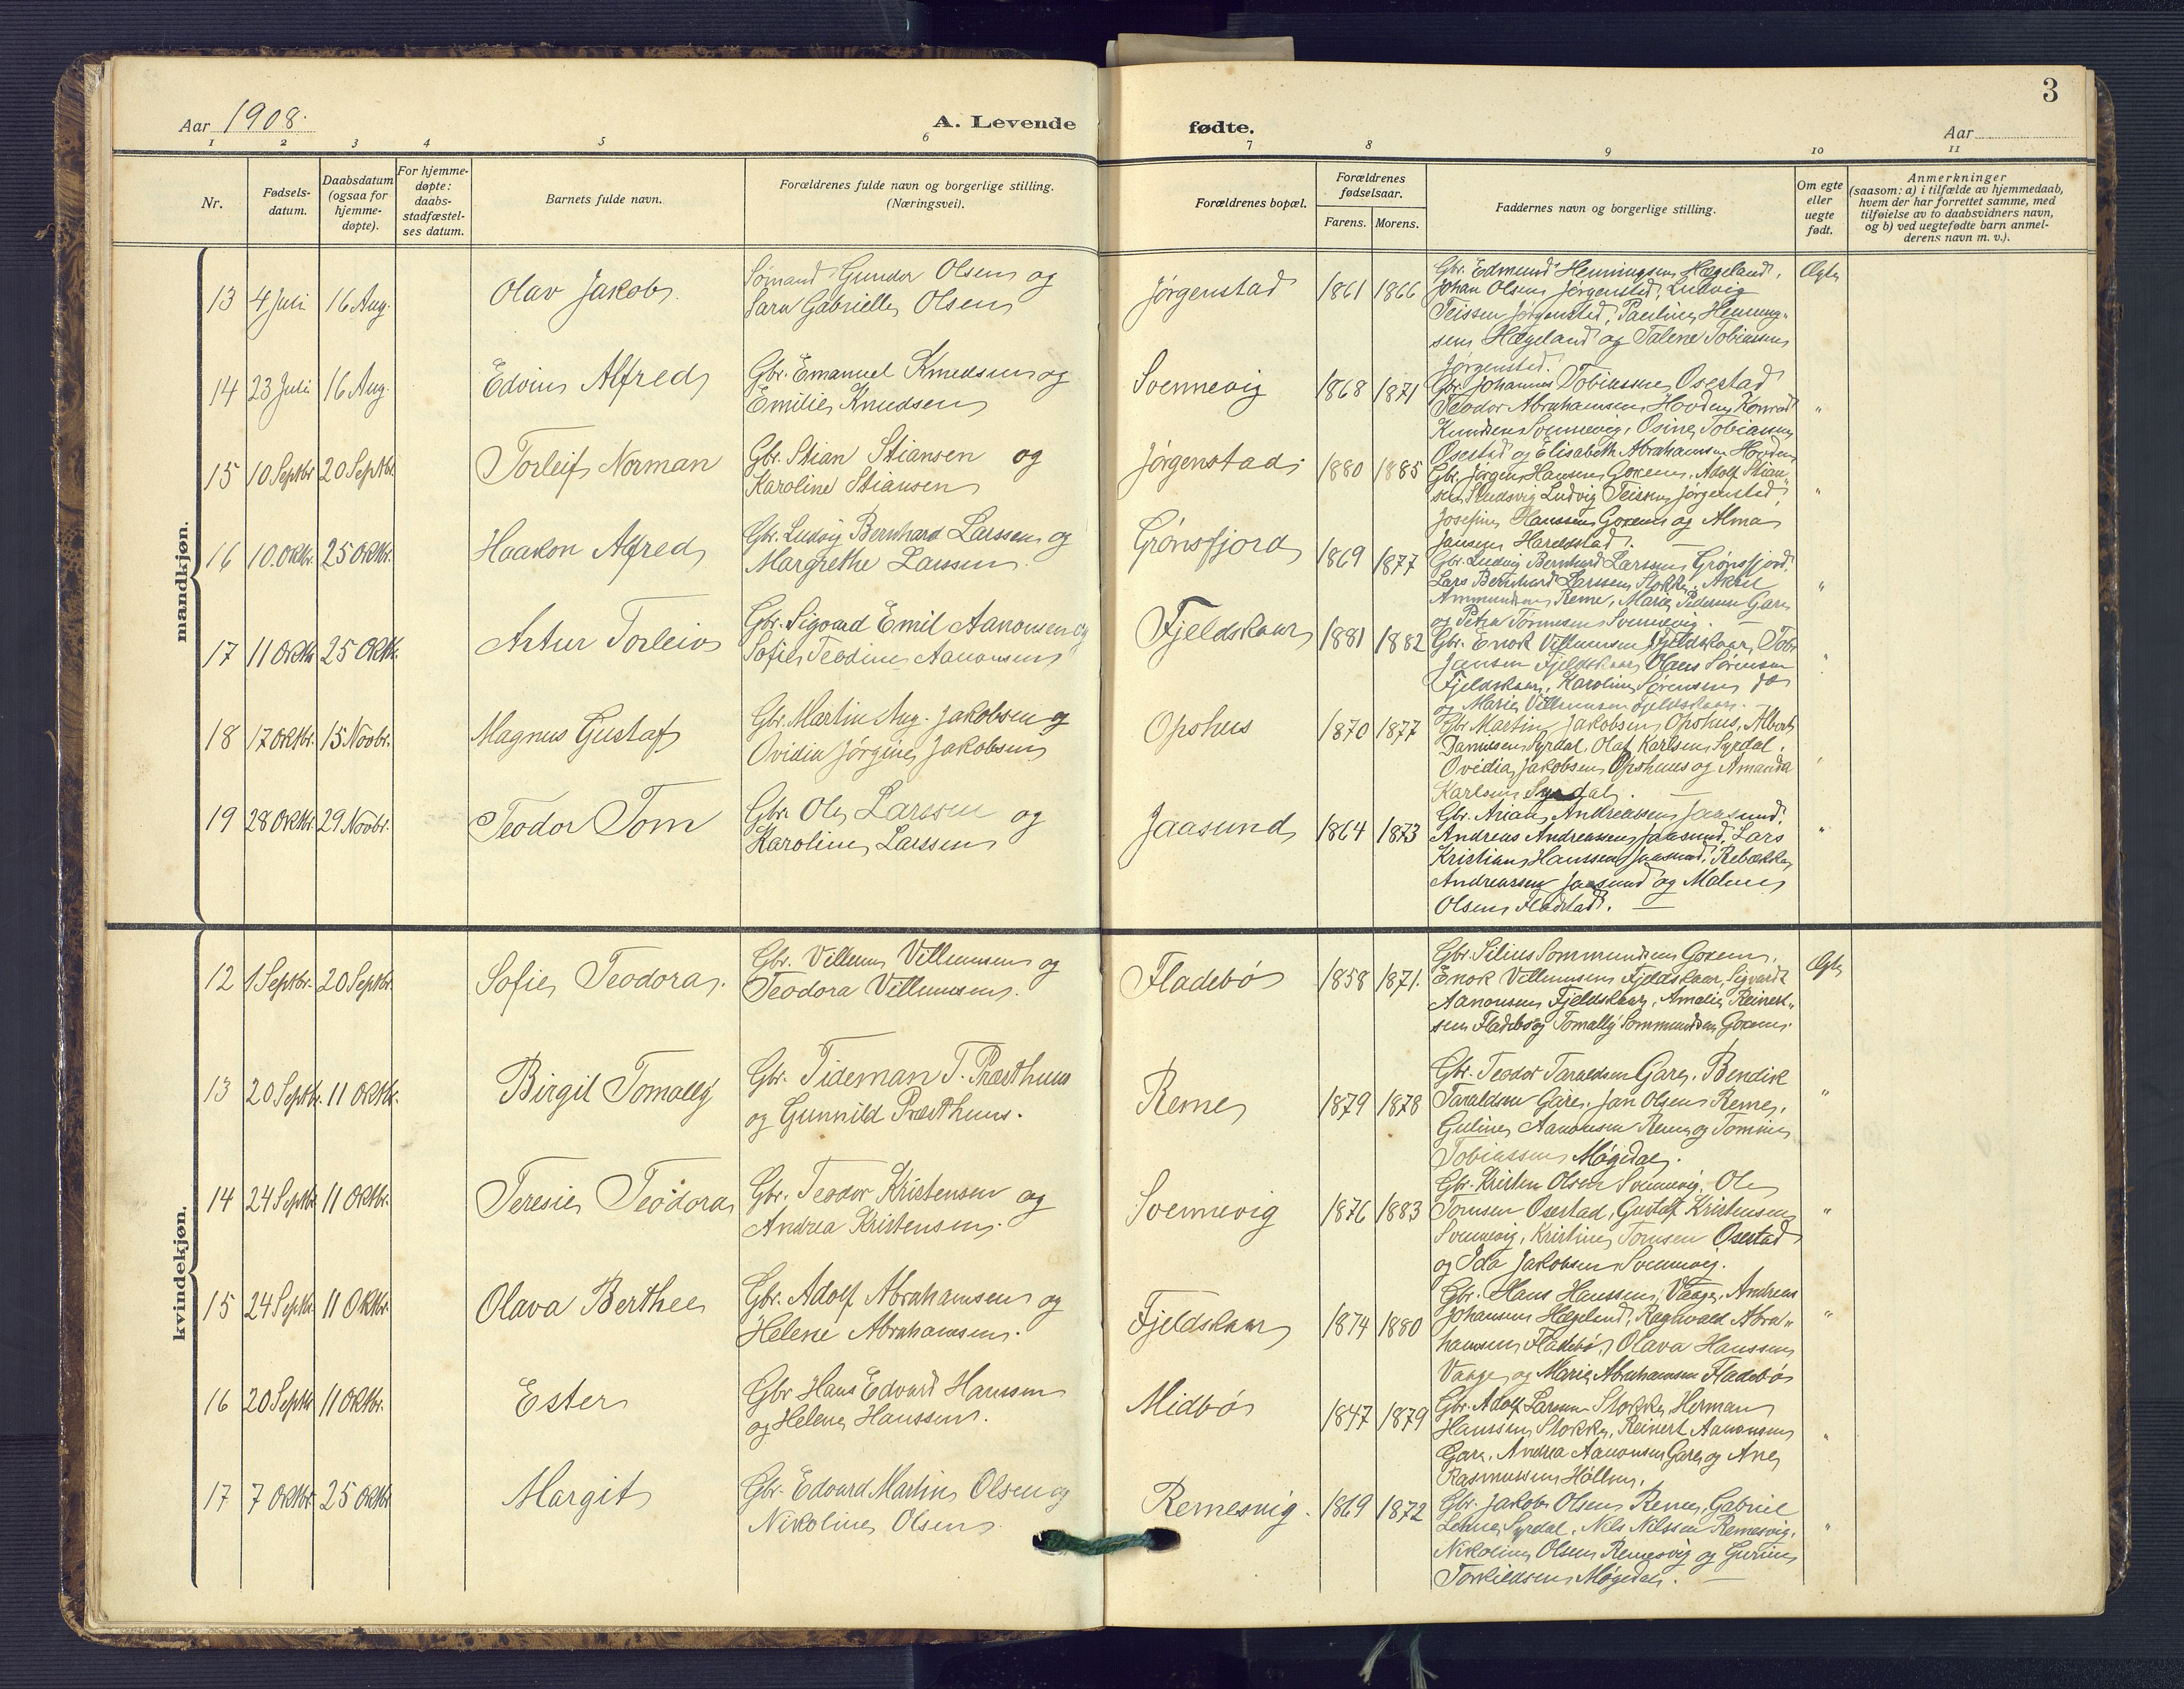 Aar 1908.
A. Levende
fødte.
3
Aar
1 2 3 4 5 6 7 8 9 10 11
Nr.
Fødsels-
datum.
Daabsdatum
(ogsaa for
hjemme-
døpte).
For hjemme-
døpte:
daabs-
stadfæstel-
ses datum.
Barnets fulde navn.
Forældrenes fulde navn og borgerlige stilling.
(Næringsvei).
Forældrenes bopæl.
Forældrenes
fødselsaar.
Farens. Morens.
Faddernes navn og borgerlige stilling.
Om egte
eller
uegte
født.
Anmerkninger
(saasom: a) i tilfælde av hjemmedaab,
hvem der har forrettet samme, med
tilføielse av to daabsvidners navn,
og b) ved uegtefødte barn anmel-
derens navn m. v.).
mandkjøn.
13 4 Juli 16 Aug. Olav Jakob
Sømand Gunder Olsen og
Sara Gabrielle Olsen
Jørgenstad 1861 1866
Gbr. Edmund Henningsen Hægeland,
Johan Olsen Jørgenstad, Ludvig
Teissen Jørgenstad, Pauline Henning-
sen Hægeland og Talene Tobiassen
Jørgenstad.
Ægte
14 23 Juli 16 Aug. Edvin Alfred
Gbr. Emanuel Knudsen og
Emilie Knudsen
Svennevig 1868 1871
Gbr. Johannes Tobiassen Osestad
Teodor Abrahamsen Hovden, Konrad
Knudsen Svennevig, Osine Tobiassen
Osestad og Elisabeth Abrahamsen Hovden
"
15 10 Septbr 20 Septbr. Torleif Norman
Gbr. Stian Stiansen og
Karoline Stiansen
Jørgenstad 1880 1885
Gbr. Jørgen Hansen Goxem, Adolf Stian-
sen, Ludvig Teissen Jørgenstad
Josefine Hanssen Goxem og Alma
Jansen Hareldstad.
"
16 10. Oktbr. 25 Oktbr. Haakon Alfred
Gbr. Ludvig Bernhard Larssen og
Margrethe Larssen.
Grønsfjord 1869 1877
Gbr. Ludvig Bernhard Larssen, Grønsfjord.
Lars Bernhard Larssen Stokke, Aksel
Ammundsen Reme, Marie Pedersen Gare
og Petra Tønnesen Svennevig.
"
17 11 Oktbr 25 Oktbr. Artur Torleiv
Gbr. Sigvard Emil Aanonsen og
Sofie Teodine Aanonsen
Fjeldskaar 1881 1882
Gbr. Enok Villumsen Fjeldskaar, Tobr.
Jansen Fjeldskaar, Olaus Sørensen
Fjeldskaar, Karoline Sørensen do
og Marie Villumsen Fjeldskaar.
"
18 17 Oktbr. 15 Novbr. Magnus Gustaf
Gbr. Martin Aug. Jakobsen og
Ovidia Jørgine Jakobsen
Opshus 1870 1877
Gbr. Martin Jakobsen Opshus, Albert
Danielsen Syrdal, Olaf Karlsen Syrdal,
Ovidia Jakobsen Opshus og Amanda
Karlsen Syrdal.
"
19 28 Oktbr. 29 Novbr. Teodor Tom
Gbr. Ole Larssen og
Karoline Larssen
Jaasund 1864 1873
Gbr. Arian Andreassen Jaasund,
Andreas Andreassen Jaasund, Lars
Kristian Hanssen Jaasund, Rebekka
Andreassen Jaasund og Malene
Olsen Fladstad.
"
kvindekjøn.
12 1 Septbr. 20 Septbr Sofie Teodora.
Gbr. Villum Villumsen og
Teodora Villumsen.
Fladebø 1858 1871.
Gbr. Silius Sommundsen Goxem,
Enok Villumsen Fjeldskaar, Sigvard
Aanonsen Fjeldskaar, Amalie Reinert-
sen Fladebø og Tomally Sommundsen Goxem.
Ægte
13 20 Septbr. 11 Oktbr. Birgit Tomally
Gbr. Tideman T. Præsthus
og Gunnild Præsthus.
Reme 1879 1878
Gbr. Teodor Taraldsen Gare, Bendik
Taraldsen Gare, Jan Olsen Reme,
Guline Aanonsen Reme og Tomine
Tobiassen Møgedal.
"
14 24 Septbr 11 Oktbr. Teresie Teodora
Gbr. Teodor Kristensen og
Andrea Kristensen.
Svennevig 1876 1883
Gbr. Kristen Olsen Svennevig, Ole
Tomsen Osestad, Gustaf Kristensen
Svennevig, Kristine Tomsen Osestad
og Ida Jakobsen Svennevig.
"
15 24 Septbr. 11 Oktbr. Olava Berthee
Gbr. Adolf Abrahamsen og
Helene Abrahamsen.
Fjeldskaar 1874 1880
Gbr. Hans Hanssen, Vaage, Andreas
Johansen Hægeland, Ragnvald Abra-
hamsen Fladebø, Olava Hanssen
Vaage og Marie Abrahamsen Fladebø
"
16 20 Septbr 11 Oktbr. Ester
Gbr Hans Edvard Hanssen
og Helene Hanssen.
Midbø 1847 1879
Gbr. Adolf Larssen Stokke, Herman
Hanssen Stokke, Reinert Aanonsen
Gare, Andrea Aanonsen Gare og Ane
Rasmussen Høllen.
"
17 7 Oktbr. 25 Oktbr Margit
Gbr. Edvard Martin Olsen og
Nikoline Olsen.
Remesvig. 1869 1872
Gbr. Jakob Olsen Reme, Gabriel
Lehne Syrdal, Nils Nilssen Remesvig,
Nikoline Olsen Remesvig og Gurine
Torkildsen Møgedal.
"